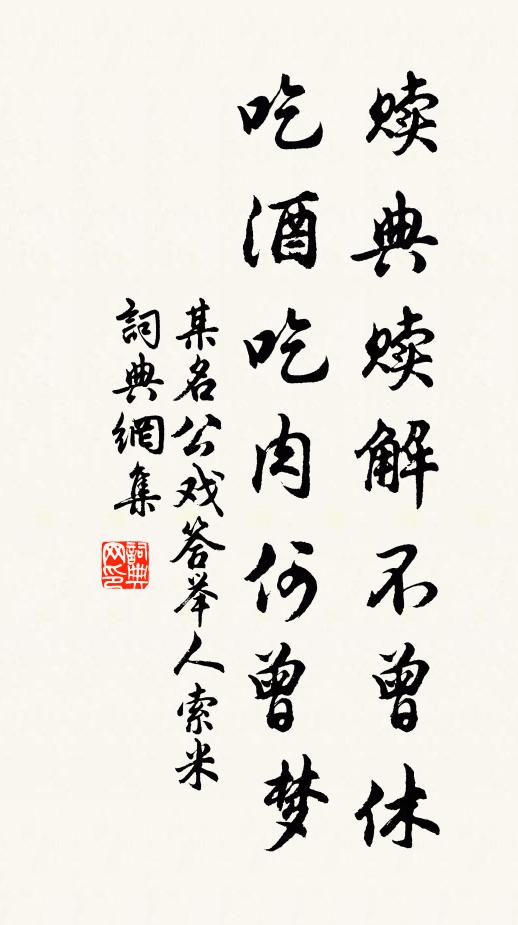 赎典赎解不曾休
吃酒吃肉何曾梦
某名公戏答举人索米
詞典網集
詞典
网印